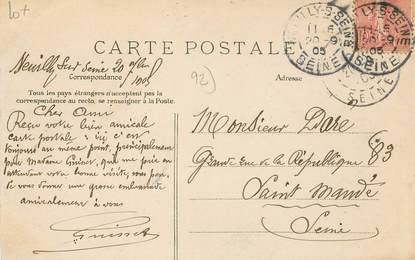 10+
CARTE POSTALE
Neuilly sur Seine 20 
1905
Correspondance
Tous les pays étrangers n'acceptent pas la
correspondance au recto, se renseigner à la Poste.
Cher Ami
Reçu votre bien amicale
carte postale : ici c'est
toujours au même point, principalement
pour Madame Guinot, que me prie en
attendant votre bonne visite,
de vous donner une grosse embrassade
amicalement à vous
Guissot
92)
NEUILLY-S-SEINE
11
20-9
05
SEINE
Adresse
Monsieur Dare
Grande rue de la République 83
Saint Mandé
Seine